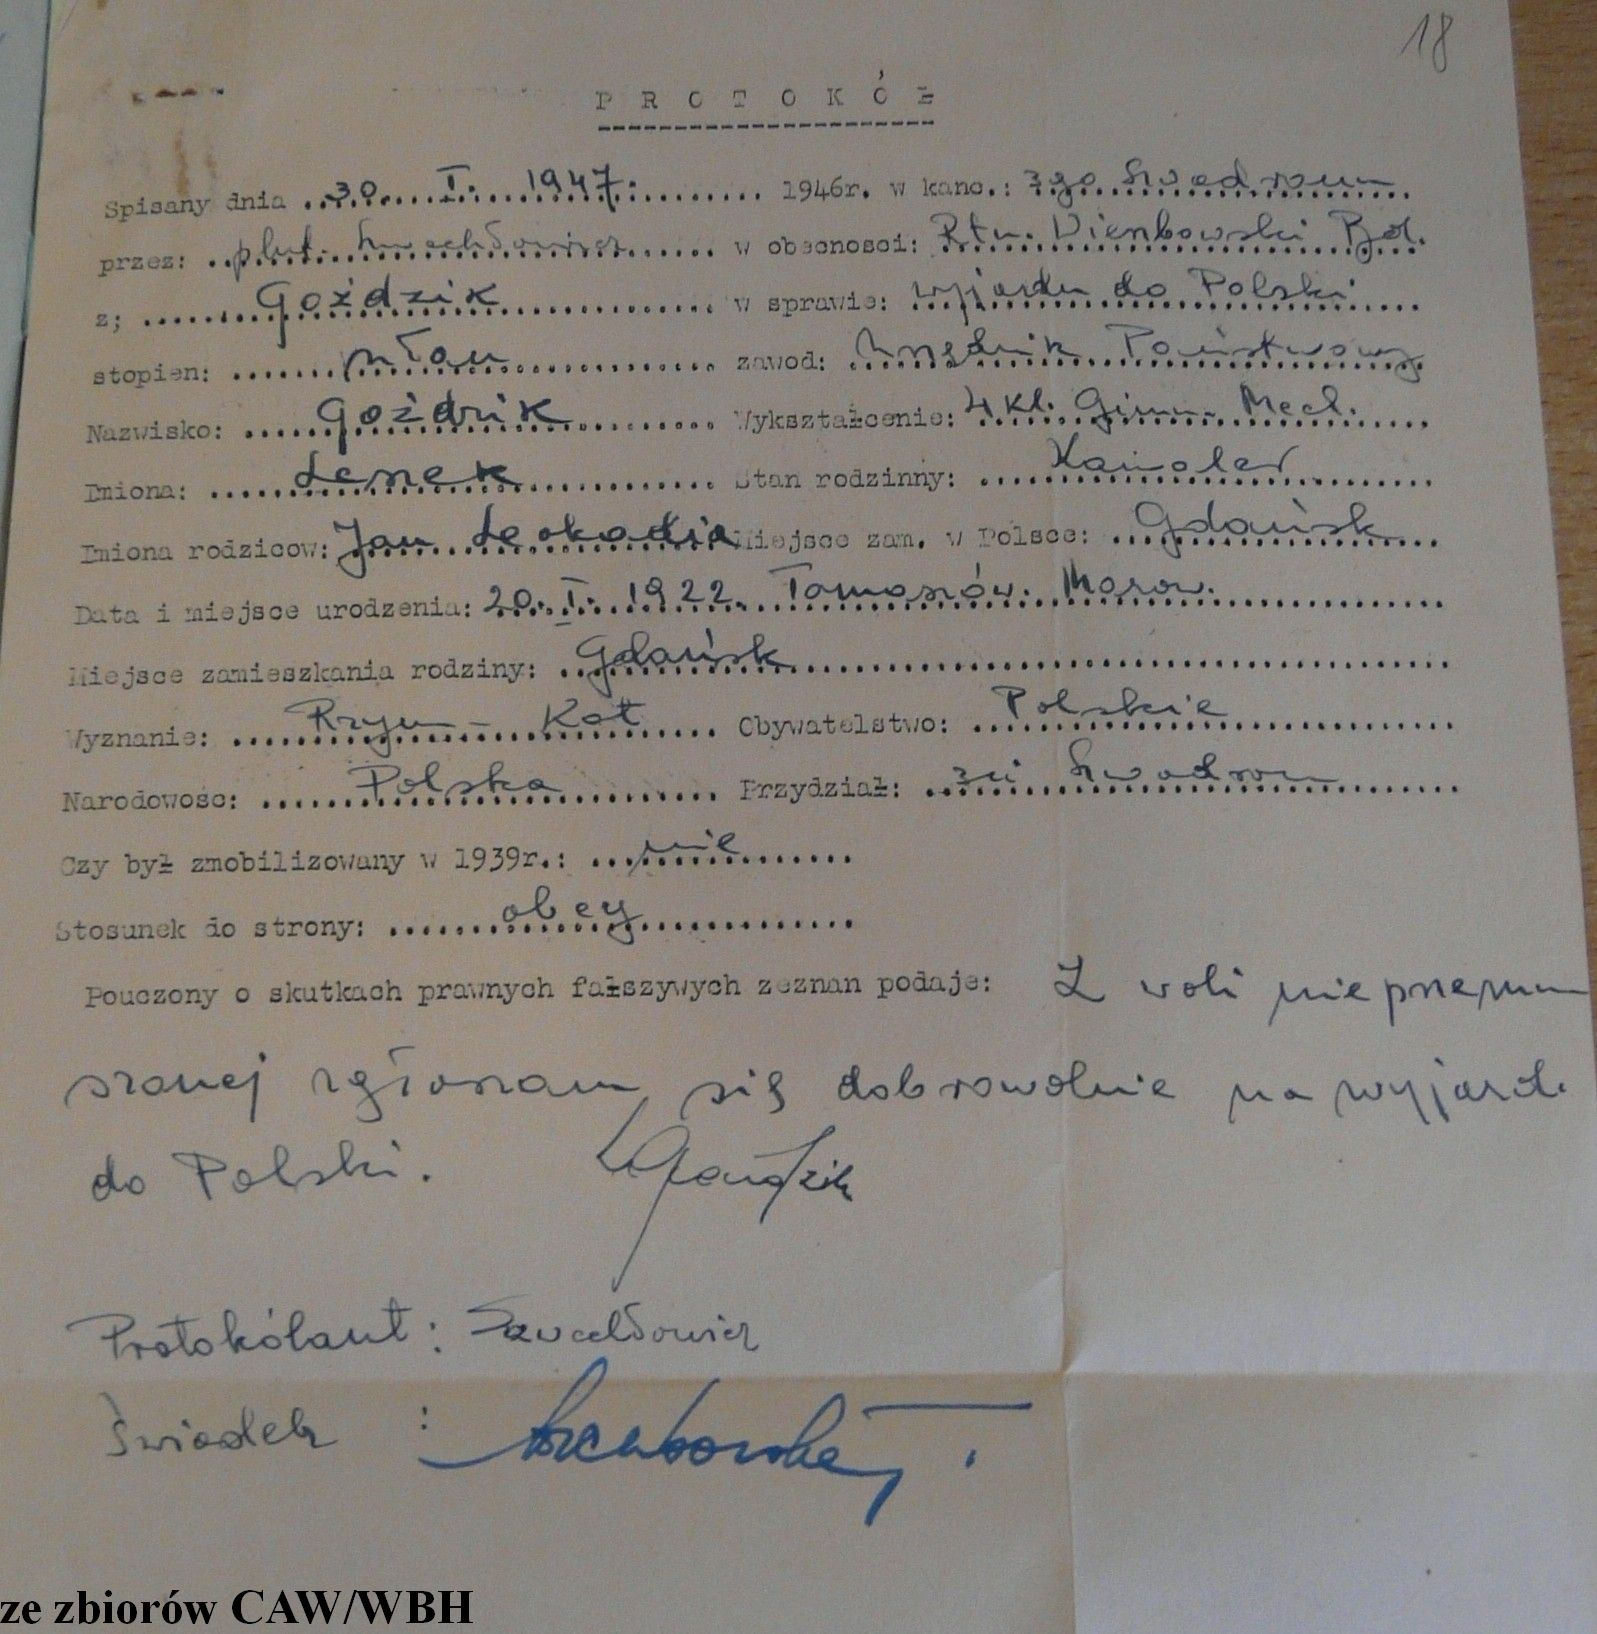 18
PROTOKÓŁ
Spisany dnia 30. I. 1947. 1946r. w kanc.: 3go Szwadronu
przez: plut. w obecnosci: Rtm. Ryd.
z; Goździk w sprawie: wyjazdu do Polski
stopien: ułan zawod: Urzędnik Państwowy
Nazwisko: Goździk Wykształcenie: 4 kl. Gimn. Mech.
Imiona: Lenek Stan rodzinny: Kawaler
Imiona rodzicow: Jan Leokadia Miejsce zam. w Polsce: Gdańsk
Data i miejsce urodzenia: 20. I. 1922. Tomaszów. Mazow.
Miejsce zamieszkania rodziny: Gdańsk
Wyznanie: Rzym - Kat Obywatelstwo: Polskie
Narodowosc: Polska Przydział: 3ci Szwadron
Czy był zmobilizowany w 1939r.: nie
Stosunek do strony: obcy
Pouczony o skutkach prawnych fałszywych zeznan podaje: Z woli nieprzymu
szonej zgłaszam się dobrowolnie na wyjazd.
do Polski. Goździk
Protokólant:
Świadek :
ze zbiorów CAW/WBH